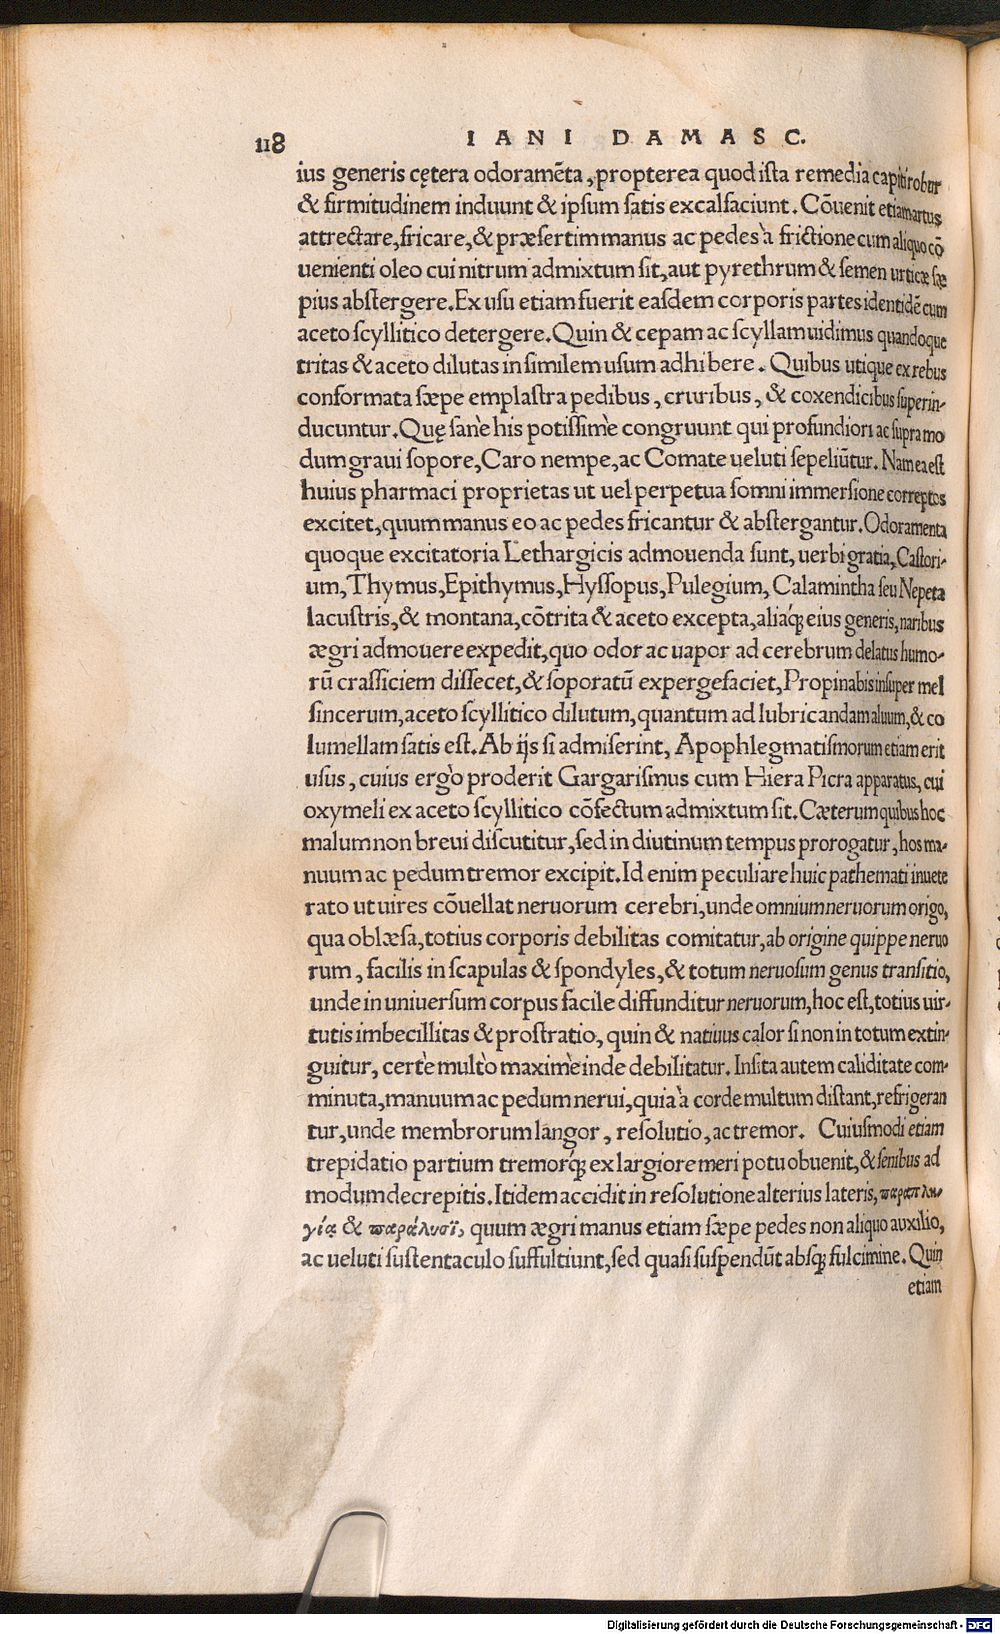 118 IANI DAMASC.
ius generis cętera odoramēta, propterea quod ista remedia capiti robur
& firmitudinem induunt & ipsum satis excalfaciunt. Cōuenit etiam artus
attrectare, fricare, & præsertim manus ac pedes à frictione cum aliquo cō
uenienti oleo cui nitrum admixtum sit, aut pyrethrum & semen urticæ sæ
pius abstergere. Ex usu etiam fuerit easdem corporis partes identidē cum
aceto scyllitico detergere. Quin & cepam ac scyllam uidimus quandoque
tritas & aceto dilutas in similem usum adhibere. Quibus utique ex rebus
conformata sæpe emplastra pedibus, cruribus, & coxendicibus superin-
ducuntur. Quę sanè his potissimè congruunt qui profundiori ac supra mo
dum graui sopore, Caro nempe, ac Comate ueluti sepeliūtur. Nam ea est
huius pharmaci proprietas ut uel perpetua somni immersione correptos
excitet, quum manus eo ac pedes fricantur & abstergantur. Odoramenta
quoque excitatoria Lethargicis admouenda sunt, uerbi gratia, Castori-
um, Thymus, Epithymus, Hyssopus, Pulegium, Calamintha seu Nepeta
lacustris, & montana, cōtrita & aceto excepta, aliaq́; eius generis, naribus
ægri admouere expedit, quo odor ac uapor ad cerebrum delatus humo-
rū crassiciem dissecet, & soporatū expergefaciet, Propinabis insuper mel
sincerum, aceto scyllitico dilutum, quantum ad lubricandam aluum, & co
lumellam satis est. Ab ijs si admiserint, Apophlegmatismorum etiam erit
usus, cuius ergò proderit Gargarismus cum Hiera Picra apparatus, cui
oxymeli ex aceto scyllitico cōfectum admixtum sit. Cæterum quibus hoc
malum non breui discutitur, sed in diutinum tempus prorogatur, hos ma-
nuum ac pedum tremor excipit. Id enim peculiare huic pathemati inuete
rato ut uires cōuellat neruorum cerebri, unde omnium neruorum origo,
qua oblæsa, totius corporis debilitas comitatur, ab origine quippe neruo
rum, facilis in scapulas & spondyles, & totum neruosum genus transitio,
unde in uniuersum corpus facile diffunditur neruorum, hoc est, totius uir-
tutis imbecillitas & prostratio, quin & natiuus calor si non in totum extin-
guitur, certè multò maximè inde debilitatur. Insita autem caliditate com-
minuta, manuum ac pedum nerui, quia à corde multum distant, refrigeran
tur, unde membrorum langor, resolutio, ac tremor. Cuiusmodi etiam
trepidatio partium tremorq́; ex largiore meri potu obuenit, & senibus ad
modum decrepitis. Itidem accidit in resolutione alterius lateris, παραπλη-
γίᾳ & παράλυσϊ, quum ægri manus etiam sæpe pedes non aliquo auxilio,
ac ueluti sustentaculo suffultiunt, sed quasi suspendūt absq; fulcimine. Quin
etiam
Digitalisierung gefördert durch die Deutsche Forschungsgemeinschaft - DFG